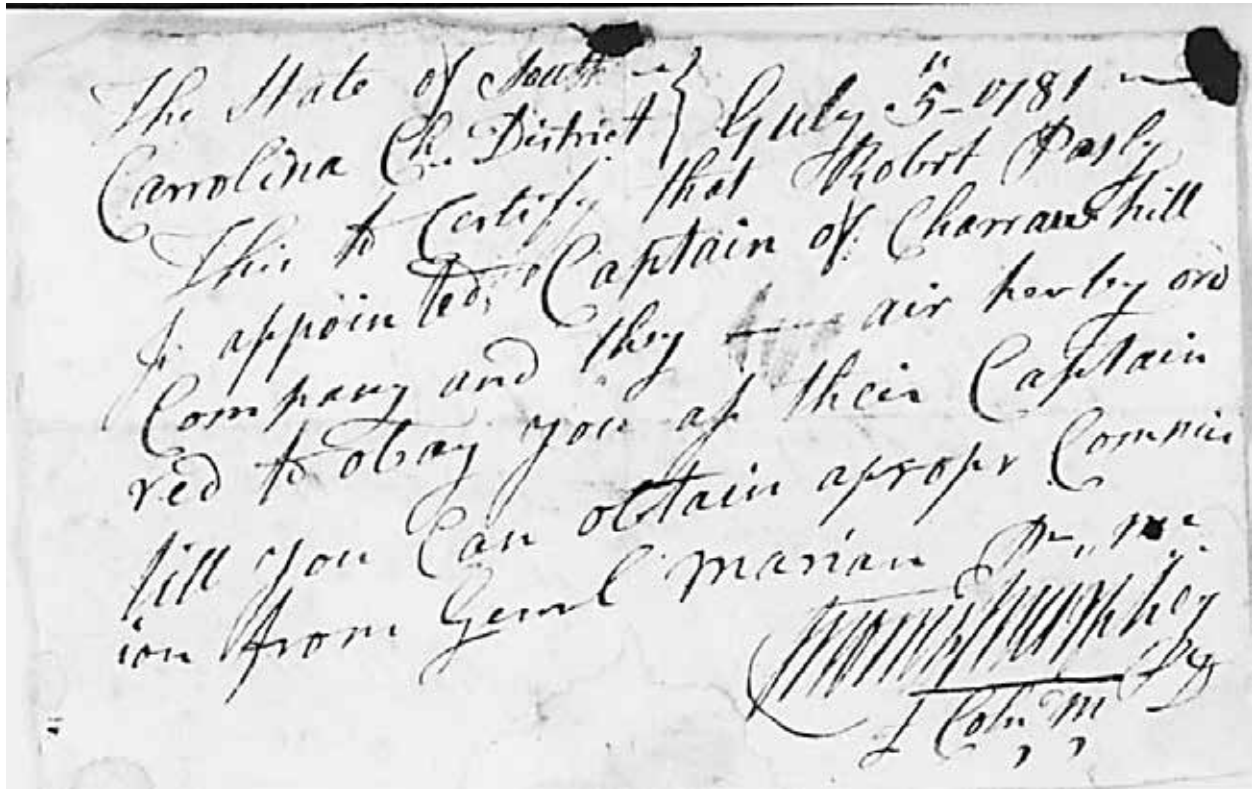 The State of South } July 5th 1781
Carolina Ch. District }
This to Certify that Robrt Pasly
Is appointed, Captain of Charraws hill
Company and they air herby ord
red to obay you as their Captain
till you Can obtain a propr Commiss
ion from Genrl Marian Pr. Me
Murphey
L Coln M